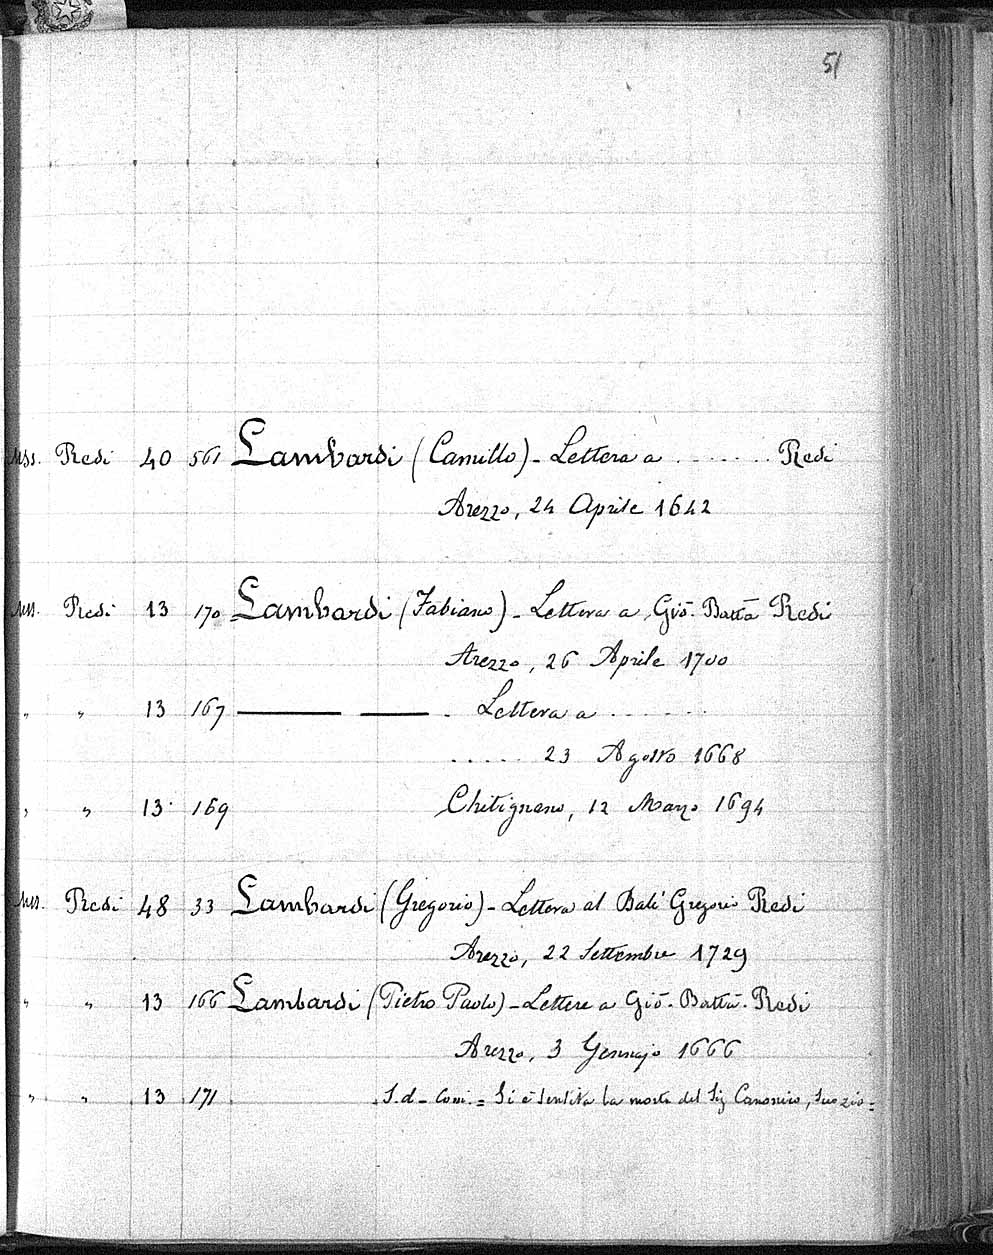 51
Mss. Redi 40 561 Lambardi (Camillo) - Lettera a . . . . . . . Redi
Arezzo, 24 Aprile 1642
Mss. Redi 13 170 Lambardi (Fabiano) - Lettera a Gio. Batta Redi
Arezzo, 26 Aprile 1700
" " 13 167 ——— ——— - Lettera a . . . . . . .
. . . . . 23 Agosto 1668
" " 13 169 Chitignano, 12 Marzo 1694
Mss. Redi 48 33 Lambardi (Gregorio) - Lettera al Balì Gregorio Redi
Arezzo, 22 Settembre 1729
" " 13 166 Lambardi (Pietro Paolo) - Lettere a Gio. Batta. Redi
Arezzo, 3 Gennajo 1666
" " 13 171 S.d - Com. = Si è sentita la morte del Sig Canonico, suo zio =